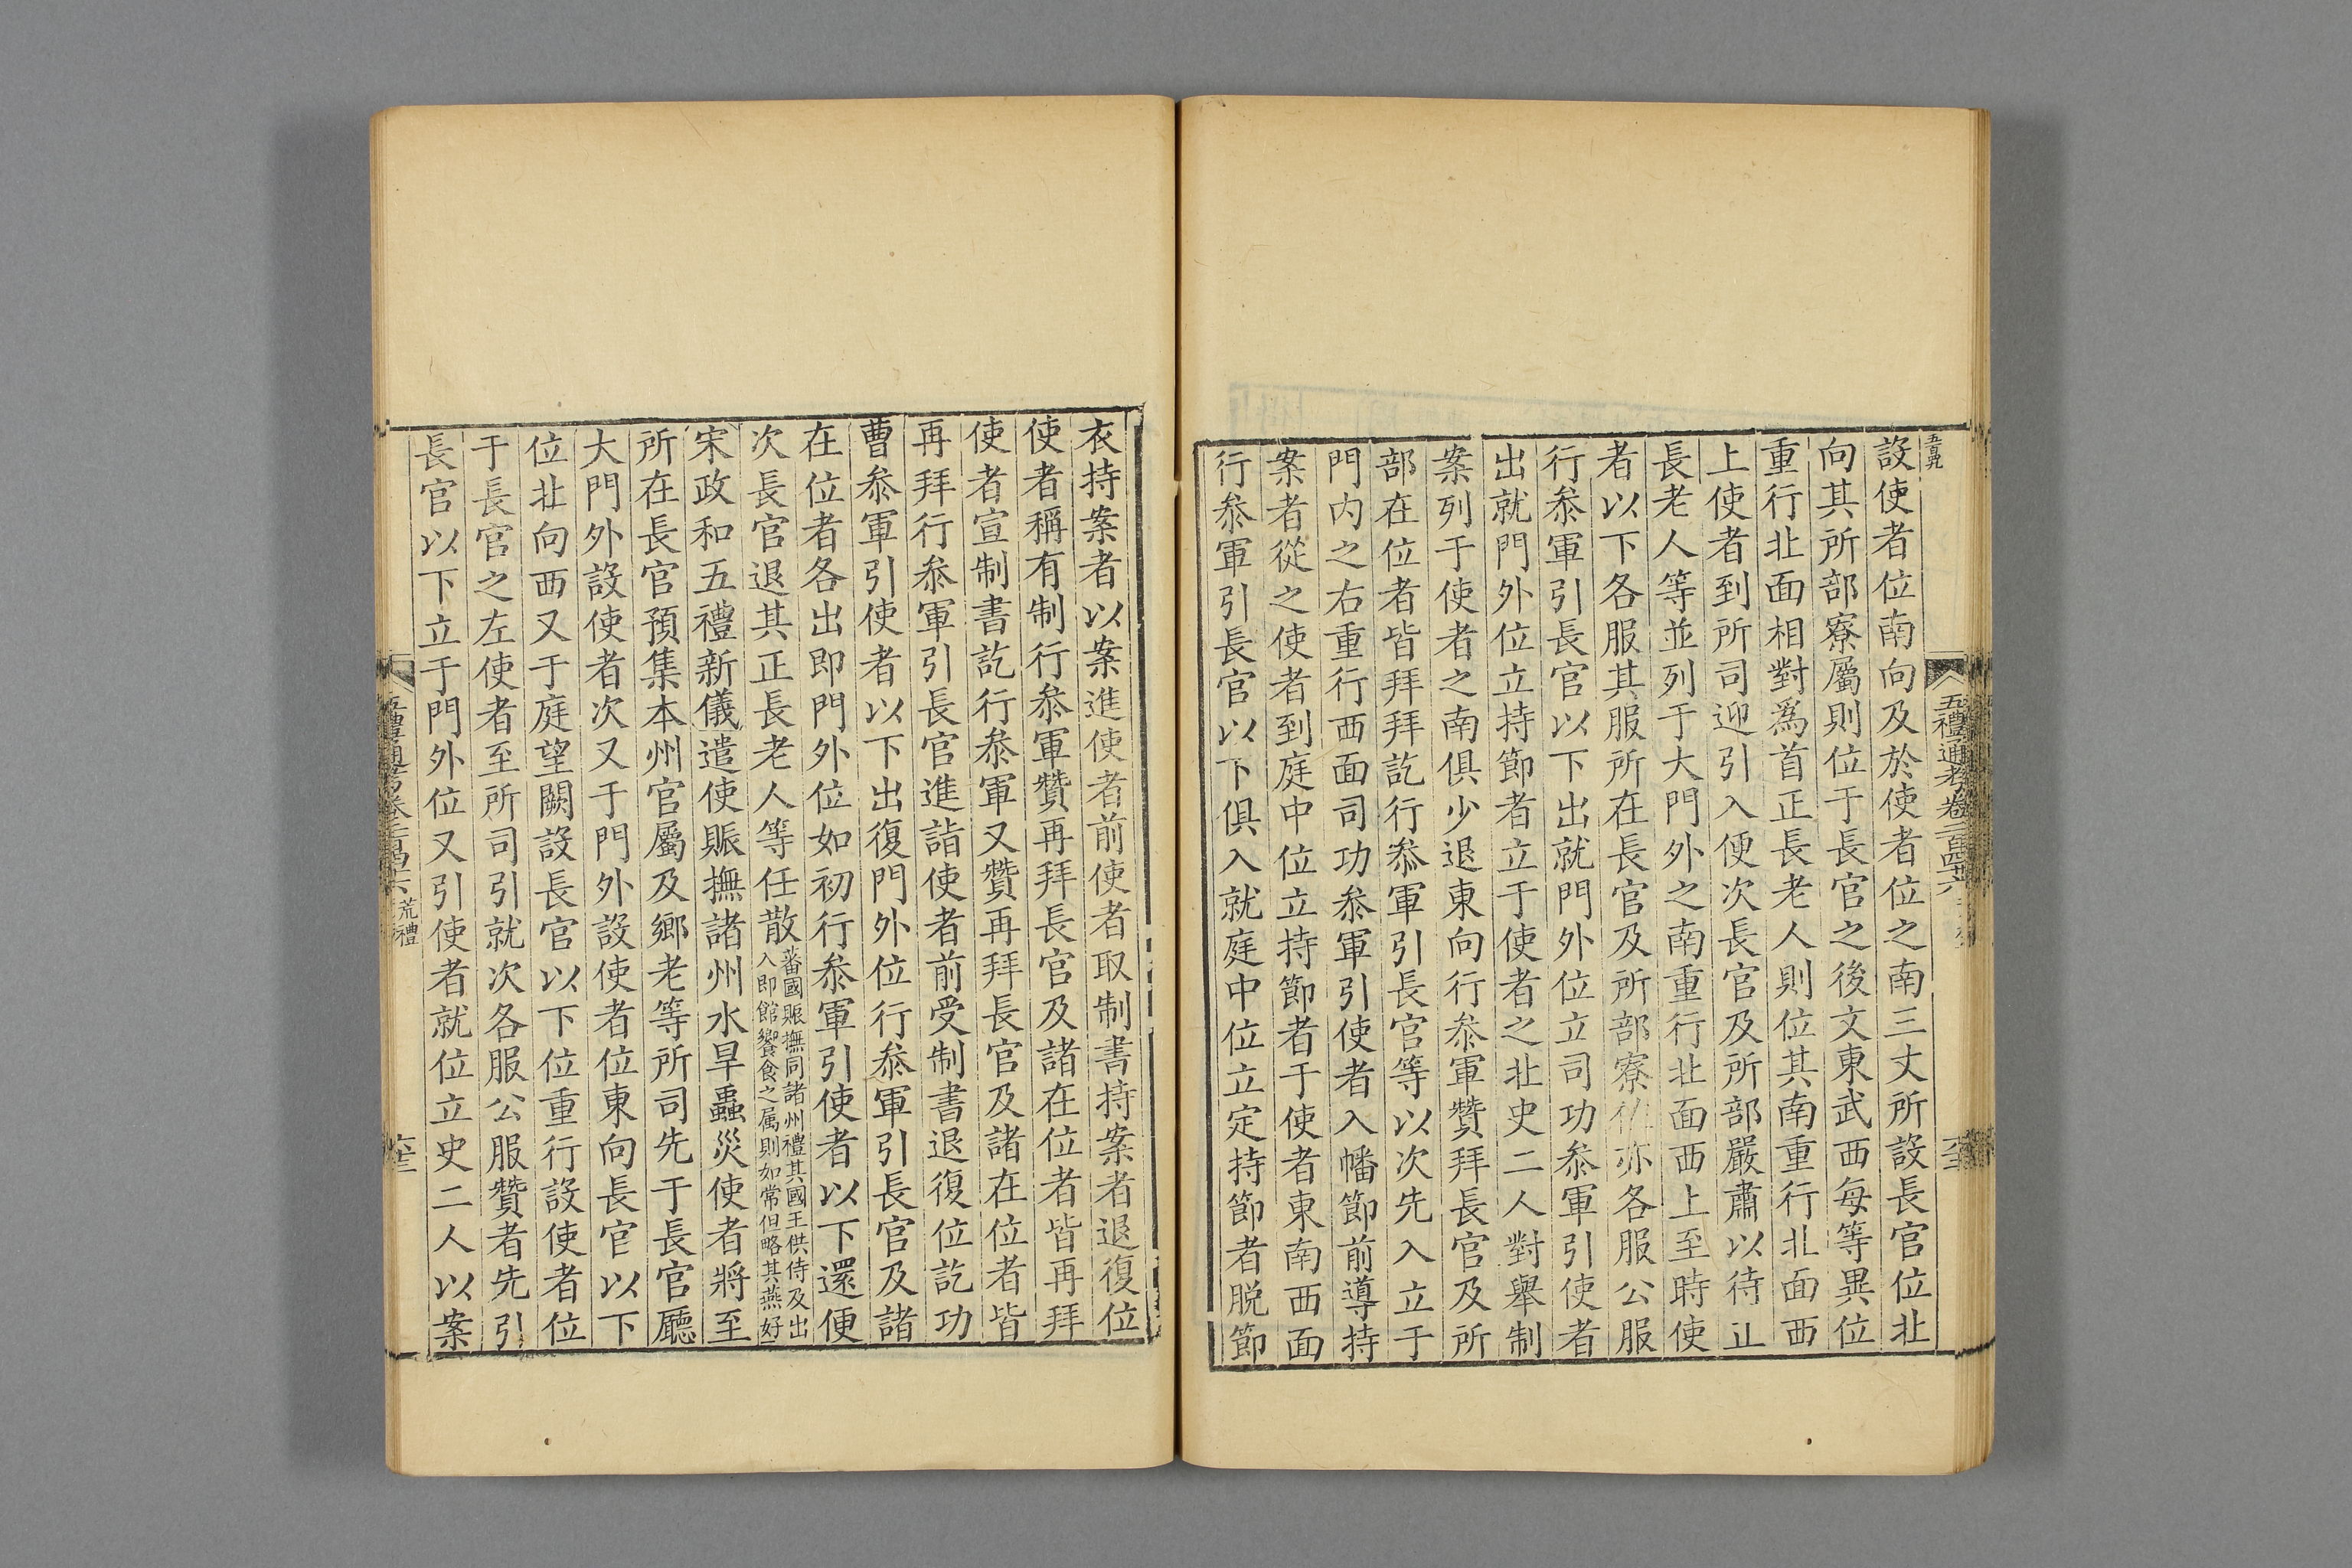 設使者位南向及於使者位之南三丈所設長官位北
向其所部寮屬則位于長官之後文東武西每等異位
重行北面相對爲首正長老人則位其南重行北面西
上使者到所司迎引入便次長官及所部嚴肅以待止
長老人等並列于大門外之南重行北面西上至時使
者以下各服其服所在長官及所部寮佐亦各服公服
行叅軍引長官以下出就門外位立司功叅軍引使者
出就門外位立持節者立于使者之北史二人對舉制
案列于使者之南俱少退東向行叅軍贊拜長官及所
部在位者皆拜拜訖行叅軍引長官等以次先入立于
門内之右重行西面司功叅軍引使者入幡節前導持
案者從之使者到庭中位立持節者于使者東南西面
行叅軍引長官以下俱入就庭中位立定持節者脱節
五禮通考卷二百四十六
衣持案者以案進使者前使者取制書持案者退復位
使者稱有制行叅軍贊再拜長官及諸在位者皆再拜
使者宣制書訖行叅軍又贊再拜長官及諸在位者皆
再拜行叅軍引長官進詣使者前受制書退復位訖功
曹叅軍引使者以下出復門外位行叅軍引長官及諸
在位者各出即門外位如初行叅軍引使者以下還便
次長官退其正長老人等任散
蕃國賑撫同諸州禮其國王供侍及出
入即館饗食之属則如常但略其燕好
宋政和五禮新儀遣使賑撫諸州水旱蟲災使者將至
所在長官預集本州官屬及鄉老等所司先于長官廳
大門外設使者次又于門外設使者位東向長官以下
位北向西又于庭望闕設長官以下位重行設使者位
于長官之左使者至所司引就次各服公服贊者先引
長官以下立于門外位又引使者就位立史二人以案
五禮通考卷二百四十六 荒禮
六十三